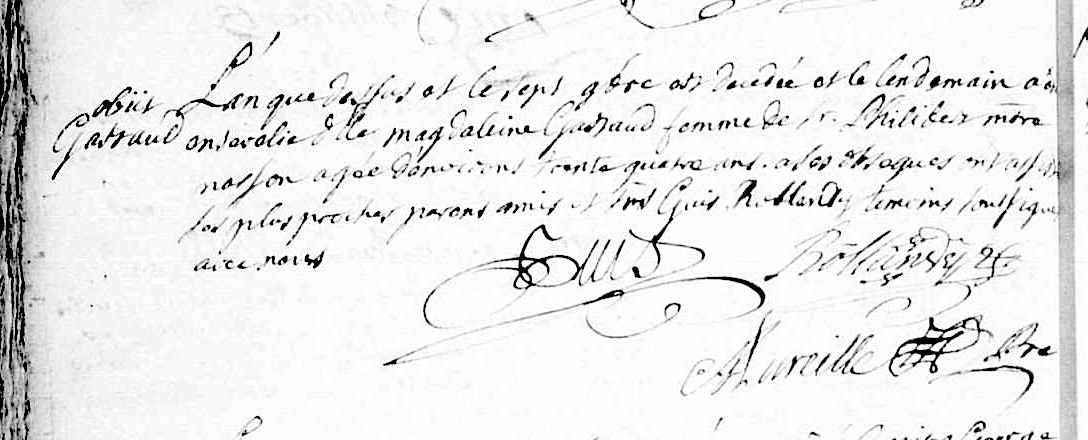 obiit
Gastaud
L'an que dessus et le sept 9bre est decedée et le lendemain a été
ensevelie dlle magdaleine Gastaud femme de sr. Philibert mtre
masson agée d'environs trente quatre ans. a ses obseques ont assisté
ses plus proches parens amis et mrs Guis Rollandy temoins soussignes
avec nous
Guis Rollandy
Aureille Pre